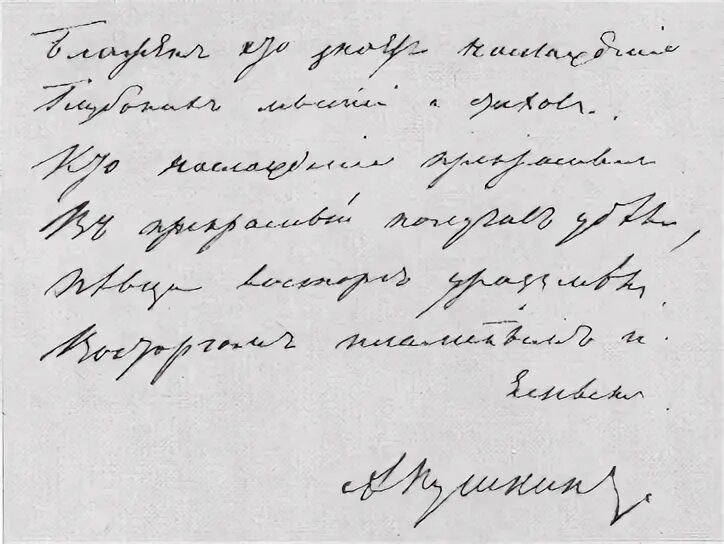 Блаженъ кто знаетъ наслажденье
Высокихъ мыслей и стиховъ.
Кто наслажденье прекраснымъ
Въ прекрасный получилъ удѣлъ,
И твой восторгъ уразумѣлъ
Восторгомъ пламеннымъ и
яснымъ.
А Пушкинъ.